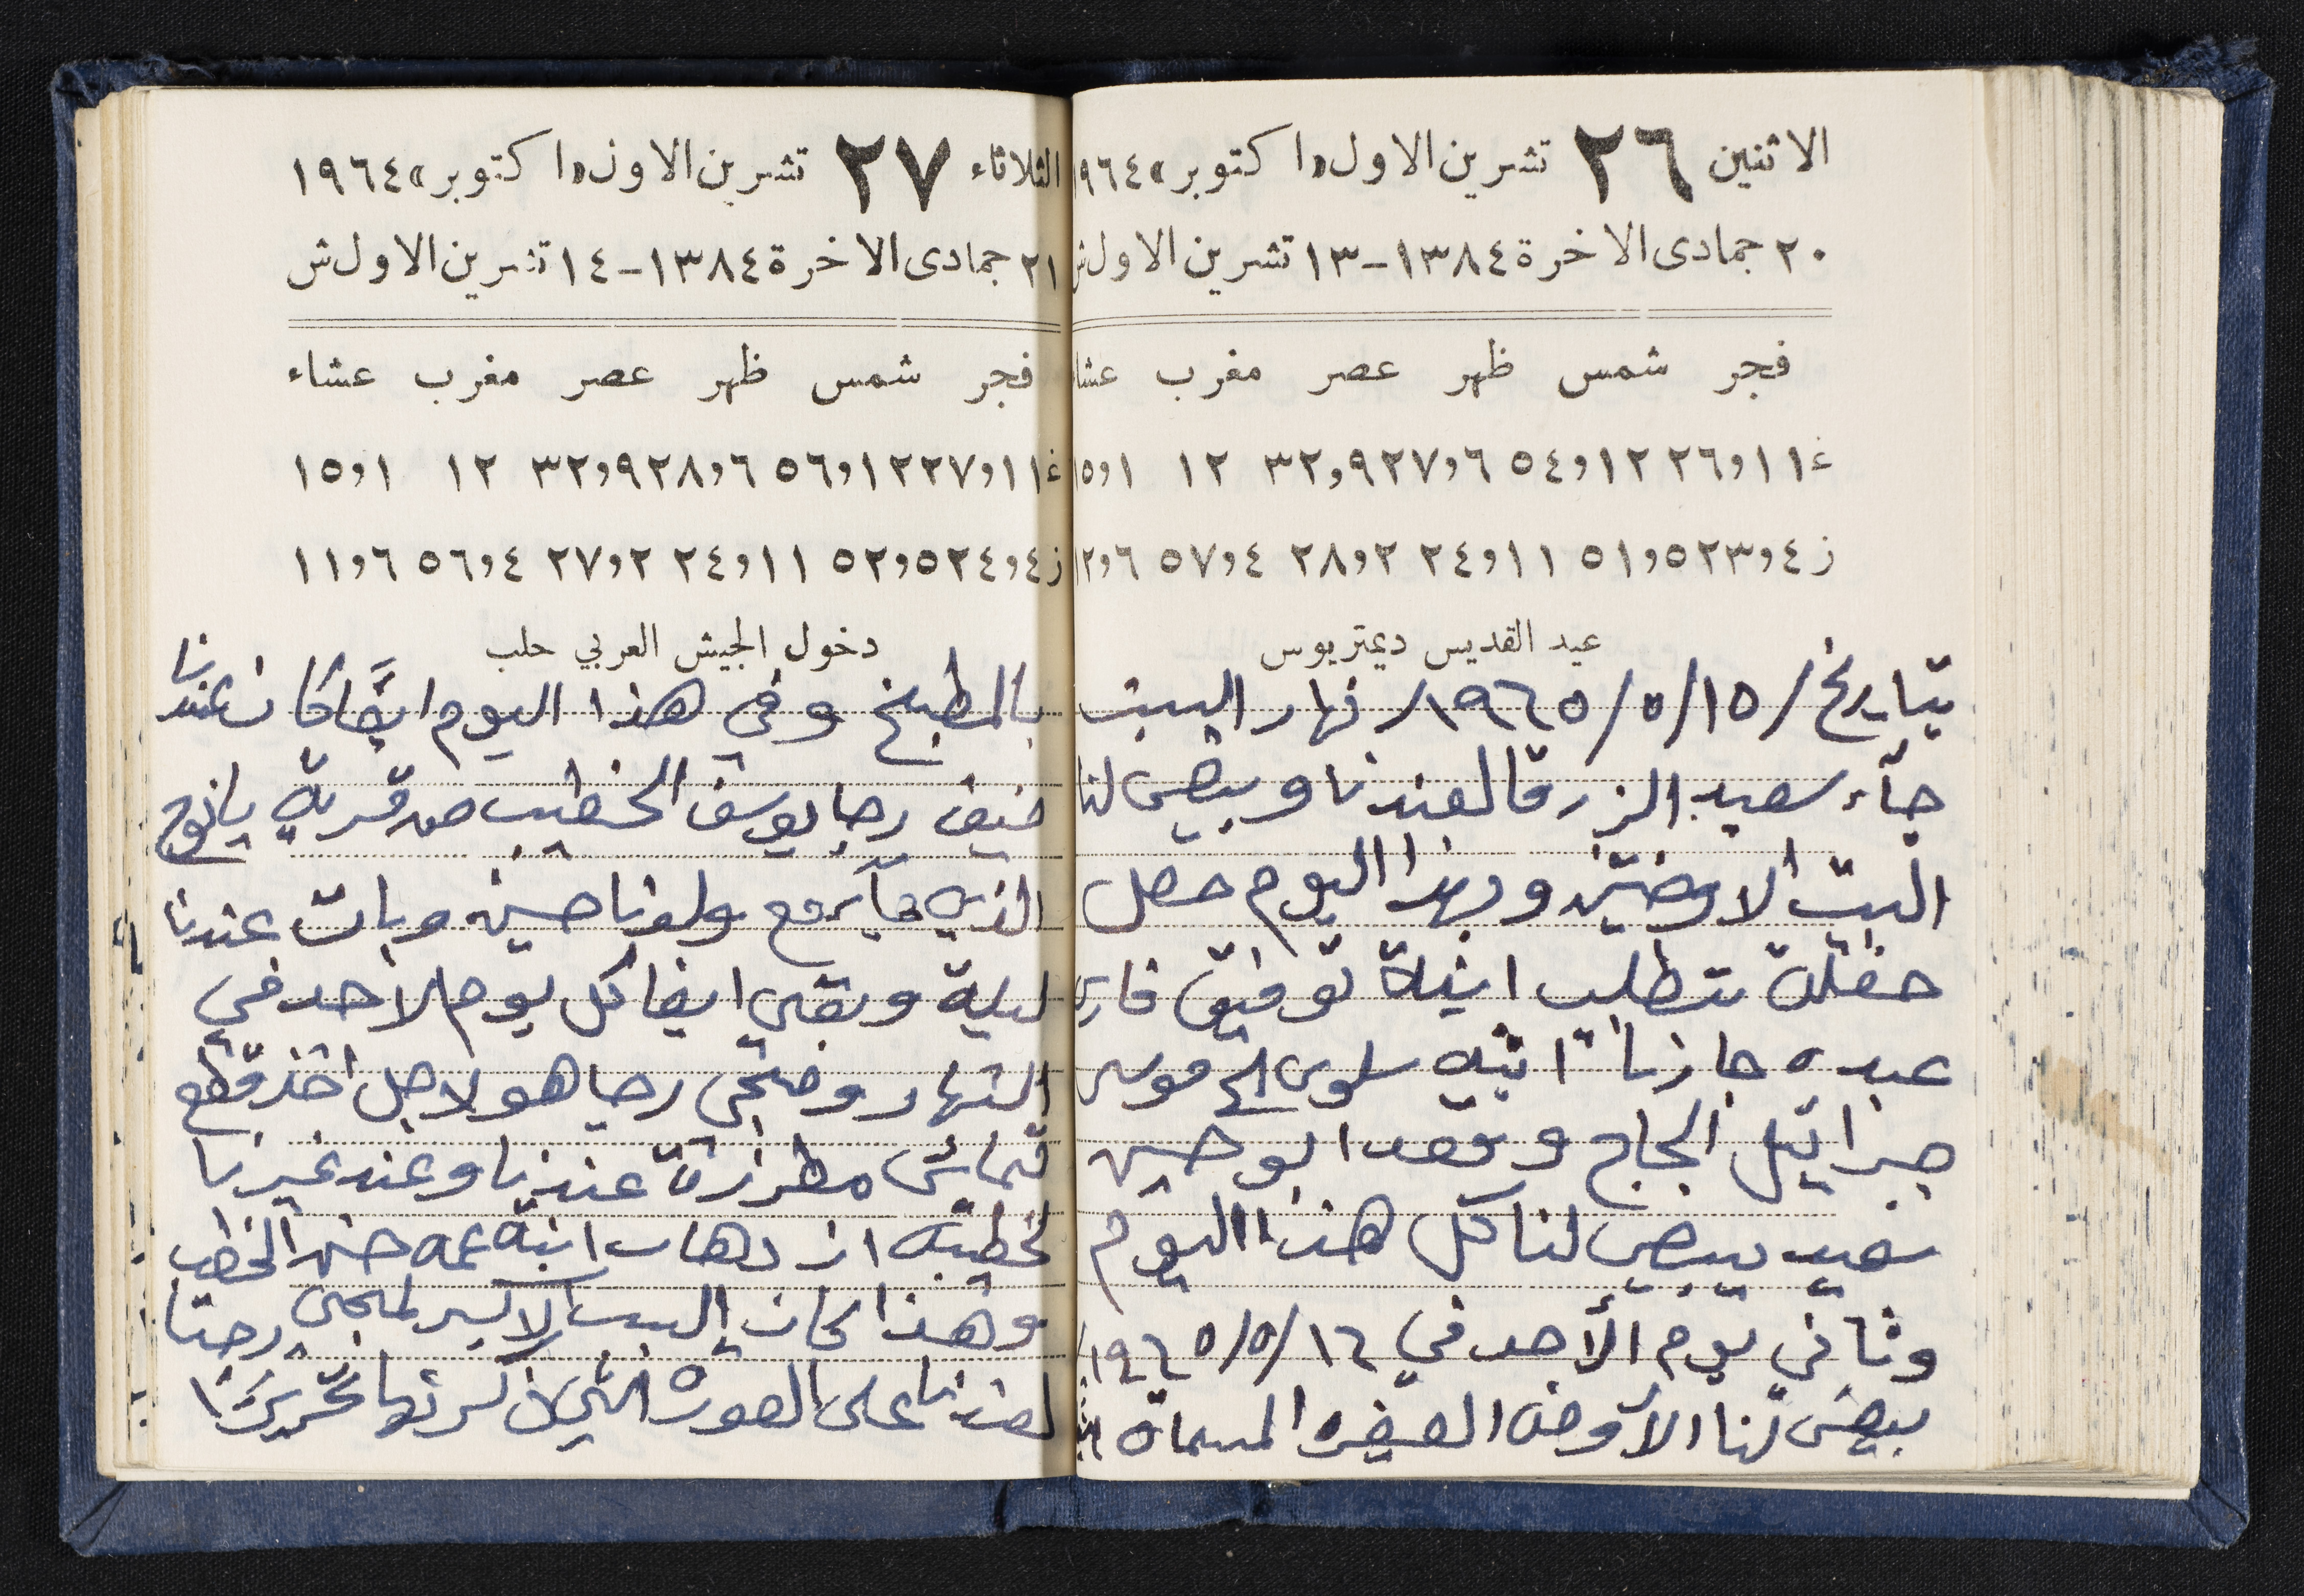 الاثنين ٢٦ تشرين الاول «اكتوبر» ١٩٦٤
٢٠ جمادى الاخرة ١٣٨٤ - ١٣ تشرين الاول ش
فجر شمس ظهر عصر مغرب عشا
غ ١١و٢٦ ١٢و٥٤ ٦و٢٧ ٩و٣٢ ١٢ ١و١٥
ز ٤و٢٣ ٥و٥١ ١١و٢٤ ٢و٢٨ ٤و٥٧ ٦و١٢
عيد القديس ديمتريوس
بتاريخ /١٥/٥/١٩٦٥/ نهار السبت
جآء سعيد الزرقا لعندنا وبيض لنا
البيت الاوضتين وبهذا اليوم حصل
حفلة بتطليب ابنة توفيق فارس
عبده جازنا ابنته سلوى الى موسى
جبرائيل الحاج وقعد ابو حسين
سعيد يبيض لنا كل هذا اليوم
وثاني يوم الأحد في ١٦/٥/١٩٦٥/
بيض لنا الأوضه الصغيره المسماة
الثلاثاء ٢٧ تشرين الاول «اكتوبر» ١٩٦٤
٢١ جمادى الاخرة ١٣٨٤ - ١٤ تشرين الاول ش
فجر شمس ظهر عصر مغرب عشاء
غ ١١و٢٧ ١٢و٥٦ ٦و٢٨ ٩و٣٢ ١٢ ١و١٥
ز ٤و٢٤ ٥و٥٢ ١١و٢٤ ٢و٢٧ ٤و٥٦ ٦و١١
دخول الجيش العربي حلب
بالمطبخ وفي هذا اليوم ايضًا كان عندنا
ضيف رجا يوسف الخطيب من قرية يانوح
الذي جآ مع ولدنا حسين وبات عندنا
ليلة وبقي ايضا كل يوم الاحد في
النهار ومجى رجا هو لاجل اخذ قطع
قماش مطرزة عندنا وعند غيرنا
لخطيبته ابنة عمه حسن الخطيب
وهذا كان السبب الاكبر لمجى رجا
لعندنا على الصوره التي ذكرتها تحريرًا